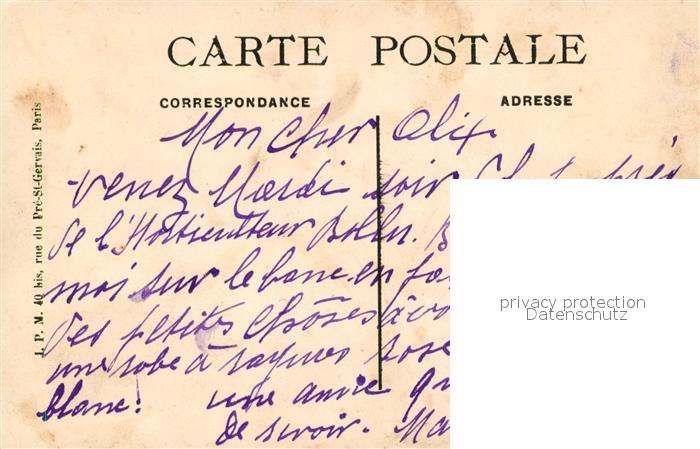 CARTE POSTALE
CORRESPONDANCE
ADRESSE
J. P. M. 40 bis, rue du Pré-St-Gervais, Paris
Mon cher Alix
venez Mardi soir
de l'Horticulteur
moi sur le banc en fa
des petites choses à vo
une robe à rayures rose
blanc! une amie q
de servoir. Ma
privacy protection
Datenschutz